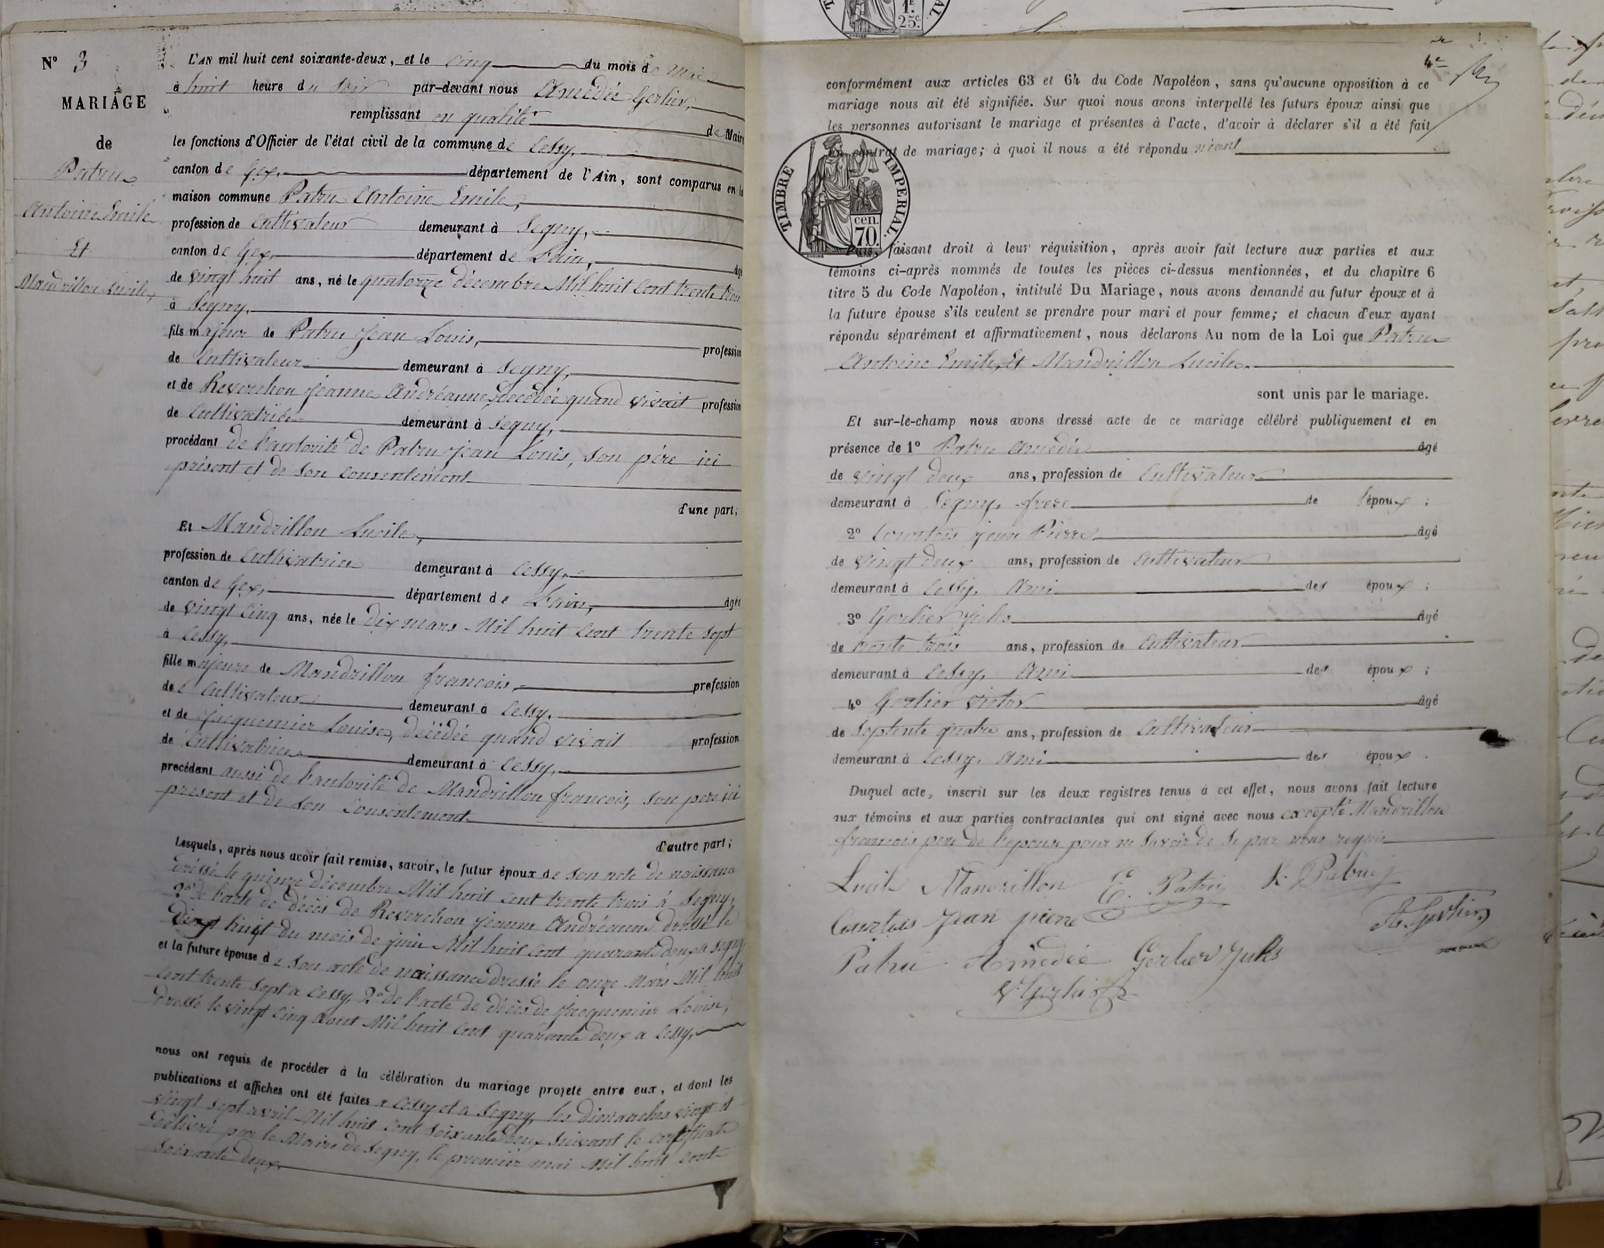 N° 3
MARIAGE
de
Patru
Antoine Emile
Et
Mandrillon Lucile,
L'AN mil huit cent soixante-deux, et le cinq du mois de mai
à huit heure du soir par-devant nous Amédée Gerlier,
remplissant en qualité de Maire
les fonctions d'Officier de l'état civil de la commune de Cessy,
canton de Gex, département de l'Ain, sont comparus en la
maison commune Patru Antoine Emile,
profession de Cultivateur demeurant à Segny,
canton de Gex, département de L'ain, âgé
de vingt huit ans, né le quatorze décembre Mil huit Cent trente trois
à Segny,
fils majeur de Patru Jean Louis, profession
de Cultivateur demeurant à Segny,
et de Reverchon Jeanne Andréanne, décédée quand vivait profession
de Cultivatrice demeurant à Segny,
procédant de l'autorité de Patru Jean Louis, son père ici
présent et de son consentement
d'une part;
Et Mandrillon Lucile,
profession de Cultivatrice demeurant à Cessy,
canton de Gex, département de L'ain, âgée
de vingt cinq ans, née le dix mars Mil huit Cent trente sept
à Cessy,
fille majeure de Mandrillon françois, profession
de Cultivateur demeurant à Cessy,
et de Jacquemier Louise, décédée quand vivait profession
de Cultivatrice demeurant à Cessy,
procédant aussi de l'autorité de Mandrillon françois, son père ici
présent et de son Consentement
d'autre part;
Lesquels, après nous avoir fait remise, savoir, le futur époux de son acte de naissance
dressé le quinze décembre Mil huit cent trente trois à Segny,
2° de l'acte de décès de Reverchon Jeanne Andréanne dressé le
huit du mois de juin Mil huit cent quarante deux à Segny
et la future épouse de son acte de naissance dressé le onze Mars Mil huit
Cent trente sept à Cessy, 2° de l'acte de décès de Jacquemier Louise,
dressé le vingt cinq aout Mil huit Cent quarante deux a Cessy,
nous ont requis de procéder à la célébration du mariage projeté entre eux, et dont les
publications et affiches ont été faites a Cessy et a Segny, les dimanches vingt et
vingt sept avril Mil huit cent soixante deux suivant le certificat
délivré par le Maire de Segny, le premier mai Mil huit cent
soixante deux
conformément aux articles 63 et 64 du Code Napoléon, sans qu'aucune opposition à ce
mariage nous ait été signifiée. Sur quoi nous avons interpellé les futurs époux ainsi que
les personnes autorisant le mariage et présentes à l'acte, d'avoir à déclarer s'il a été fait
un contrat de mariage; à quoi il nous a été répondu néant
TIMBRE IMPÉRIAL.
cen.
70.
faisant droit à leur réquisition, après avoir fait lecture aux parties et aux
témoins ci-après nommés de toutes les pièces ci-dessus mentionnées, et du chapitre 6
titre 5 du Code Napoléon, intitulé Du Mariage, nous avons demandé au futur époux et à
la future épouse s'ils veulent se prendre pour mari et pour femme; et chacun d'eux ayant
répondu séparément et affirmativement, nous déclarons Au nom de la Loi que Patru
Antoine Emile, Et Mandrillon Lucile
sont unis par le mariage.
Et sur-le-champ nous avons dressé acte de ce mariage célébré publiquement et en
présence de 1° Patru Amédée âgé
de vingt deux ans, profession de Cultivateur
demeurant à Segny, frère de l'époux;
2° Courtois Jean Pierre âgé
de vingt deux ans, profession de Cultivateur
demeurant à Cessy, Ami des époux;
3° Gerlier Jules âgé
de trente trois ans, profession de Cultivateur
demeurant à Cessy, Ami des époux;
4° Gerlier Victor âgé
de septente quatre ans, profession de Cultivateur
demeurant à Cessy, Ami des époux.
Duquel acte, inscrit sur les deux registres tenus à cet effet, nous avons fait lecture
aux témoins et aux parties contractantes qui ont signé avec nous excepté Mandrillon
françois père de l'epouse pour ne savoir de ce par nous requis
Lucile Mandrillon E. Patru J. L. Patru
Courtois Jean pierre A. Gerlier
Patru Amédée Gerlier Jules
V. Gerlier